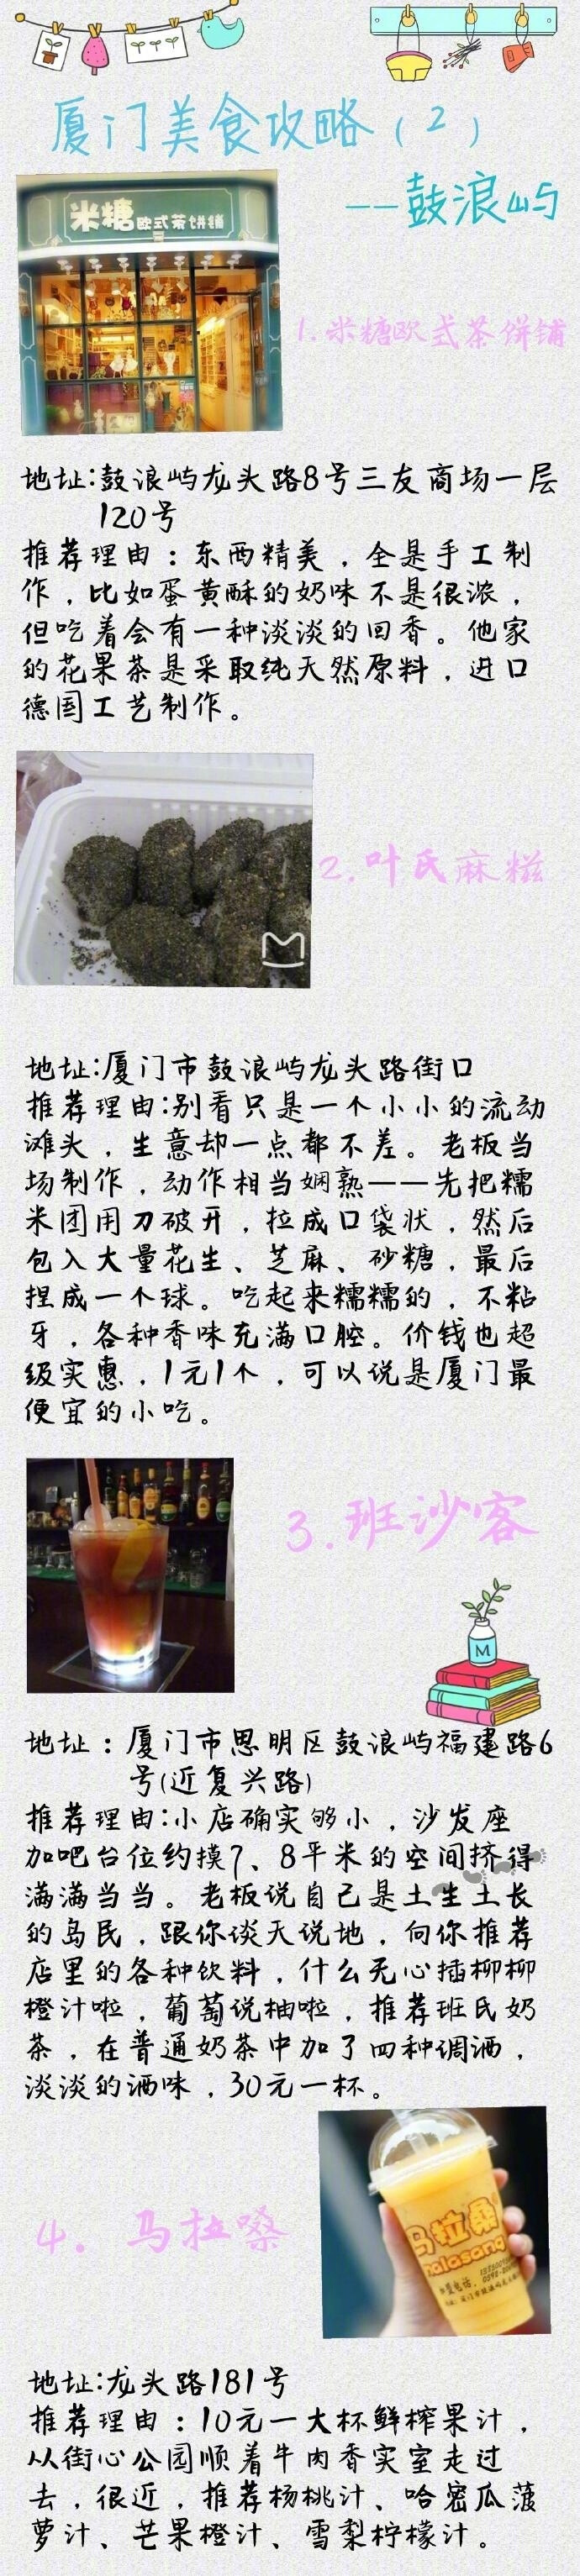 厦门美食攻略（2）
——鼓浪屿
米糖欧式茶饼铺
1.米糖欧式茶饼铺
地址:鼓浪屿龙头路8号三友商场一层
120号
推荐理由：东西精美，全是手工制
作，比如蛋黄酥的奶味不是很浓，
但吃着会有一种淡淡的回香。他家
的花果茶是采取纯天然原料，进口
德国工艺制作。
2.叶氏麻糍
地址:厦门市鼓浪屿龙头路街口
推荐理由:别看只是一个小小的流动
滩头，生意却一点都不差。老板当
场制作，动作相当娴熟——先把糯
米团用刀破开，拉成口袋状，然后
包入大量花生、芝麻、砂糖，最后
捏成一个球。吃起来糯糯的，不粘
牙，各种香味充满口腔。价钱也超
级实惠，1元1个，可以说是厦门最
便宜的小吃。
3.班沙客
M
地址：厦门市思明区鼓浪屿福建路6
号(近复兴路)
推荐理由:小店确实够小，沙发座
加吧台位约摸7、8平米的空间挤得
满满当当。老板说自己是土生土长
的岛民，跟你谈天说地，向你推荐
店里的各种饮料，什么无心插柳柳
橙汁啦，葡萄说柚啦，推荐班氏奶
茶，在普通奶茶中加了四种调酒，
淡淡的酒味，30元一杯。
4.马拉嗓
马拉桑
malasang
地址:龙头路181号
推荐理由：10元一大杯鲜榨果汁，
从街心公园顺着牛肉香实室走过
去，很近，推荐杨桃汁、哈密瓜菠
萝汁、芒果橙汁、雪梨柠檬汁。